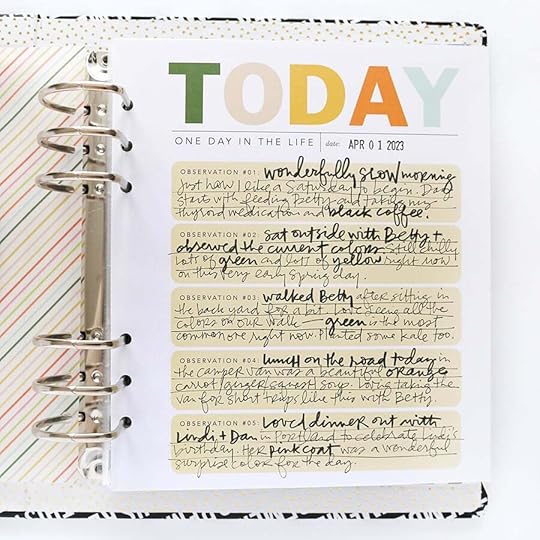 TODAY
ONE DAY IN THE LIFE date: APR 01 2023
OBSERVATION #01: wonderfully slow morning
Just how I like a Saturday to begin. Days
start with feeding Betty and taking my
thyroid medication and black coffee.
OBSERVATION #02: sat outside with Betty +
observed the current colors. Still chilly
Lots of green and lots of yellow right now
on this very early spring day.
OBSERVATION #03: walked Betty after sitting in
the back yard for a bit. Love seeing all the
colors on our walk — green is the most
common one right now. Planted some kale too.
OBSERVATION #04: lunch on the road today in
the camper van was a beautiful orange
carrot/ginger/squash soup. Loving taking the
van for short trips like this with Betty.
OBSERVATION #05: Loved dinner out with
Lindi + Dan in Portland to celebrate Lindi's
birthday. Her pink coat was a wonderful
surprise color for the day.